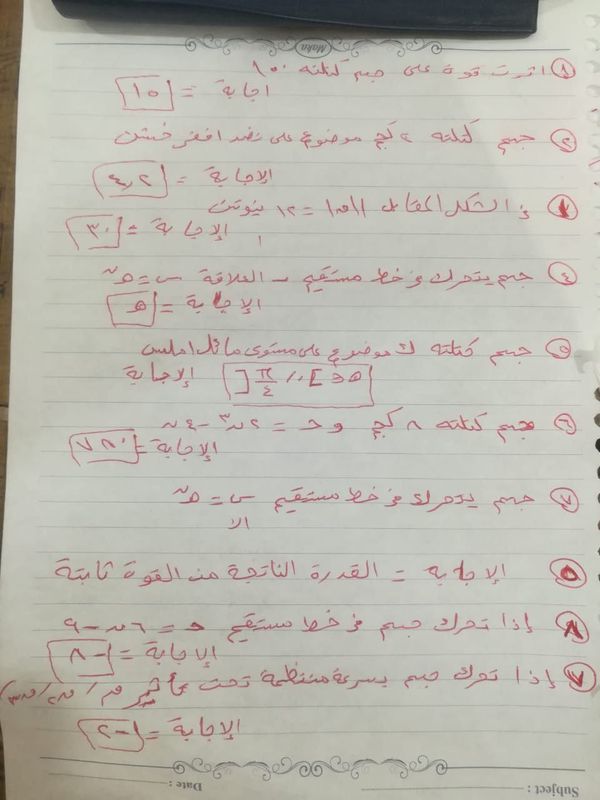 Maka
① اثرت قوة على جسم كتلته ١٠
اجابة = ١٥
② جسم كتلته ٢ كج موضوع على نضد افقى خشن
الإجابة = ٤,٢
في الشكل المقابل = ١٢ نيوتن
الإجابة = ٣٠
④ جسم يتحرك في خط مستقيم العلاقة س = هـ^ن
الإجابة = هـ
⑤ جسم كتلته ك موضوع على مستوى مائل املس
الإجابة هـ ∈ ]٠، π/٤[
⑥ جسم كتلته ٨ كج و ح = ٢ن٣ - ٤ن
الإجابة = ٧٨٠
⑦ جسم يتحرك في خط مستقيم س = هـ^ن
الا
الإجابة = القدرة الناتجة من القوة ثابتة
⑧ إذا تحرك جسم في خط مستقيم = ٦ن - ٩
الإجابة = -٨
إذا تحرك جسم بسرعة منتظمة تحت تأثير ق١، ق٢، ق٣
الإجابة = -٢
Subject :
Date :